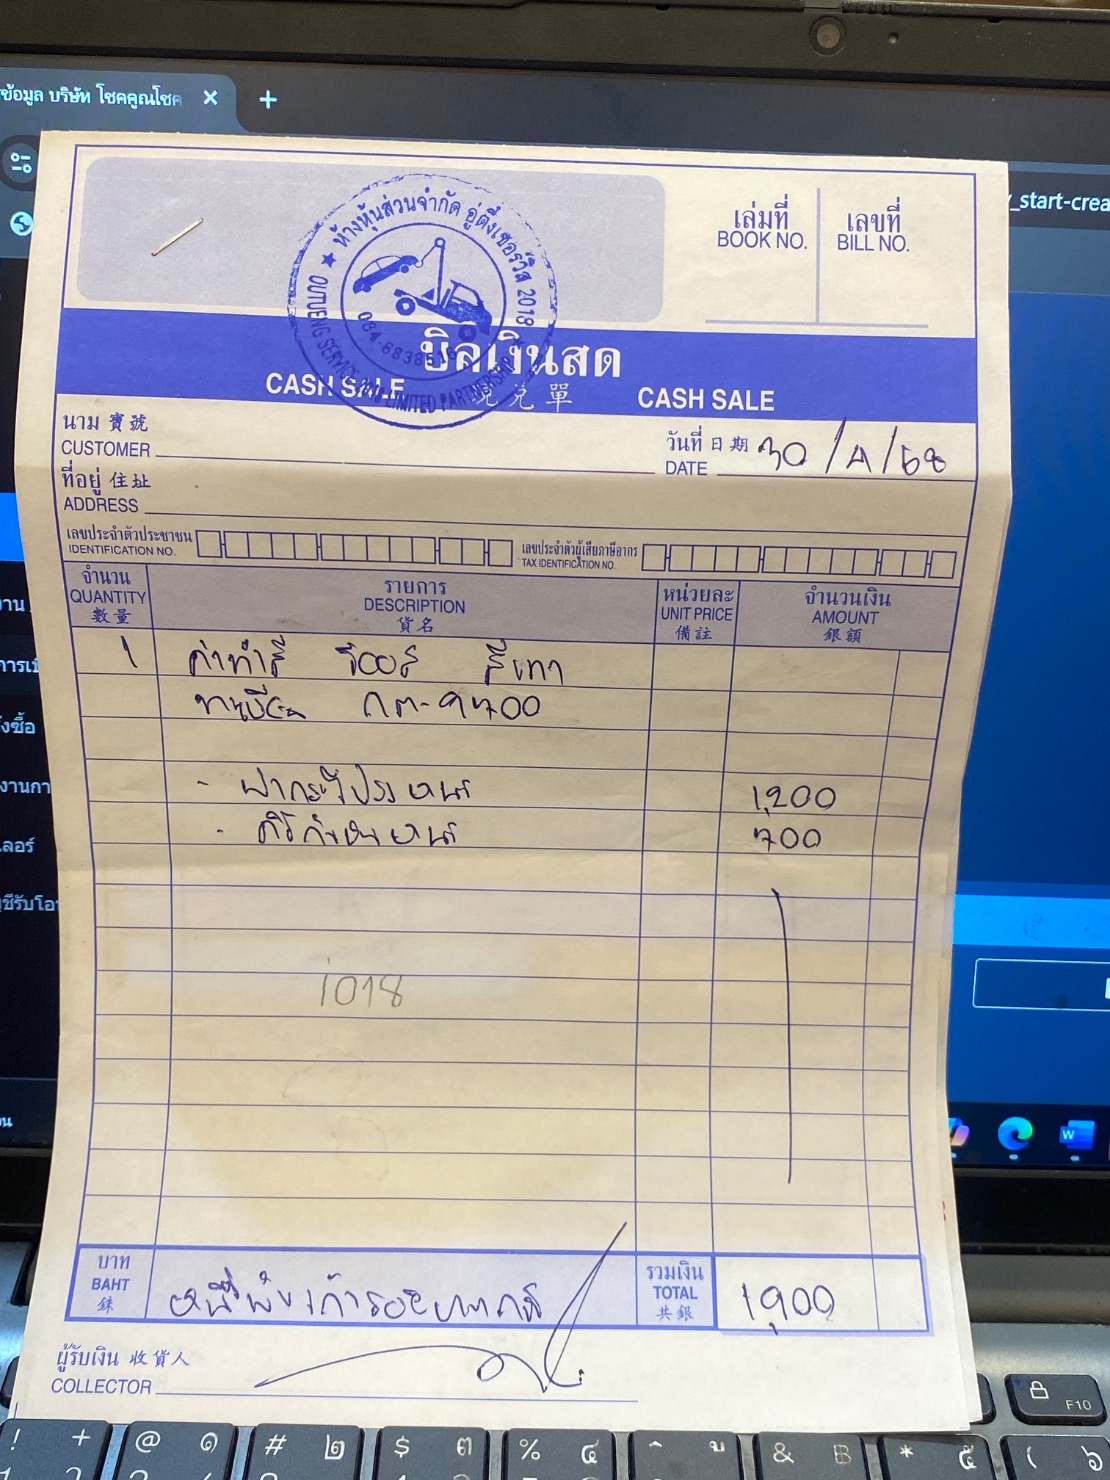 ข้อมูล บริษัท โชคคูณโชค
_start-crea
ห้างหุ้นส่วนจำกัด อู่ตึ๋งเซอร์วิส 2018
OUTUENG SERVICE 2018 LIMITED PARTNERSHIP
เล่มที่ เลขที่
BOOK NO. BILL NO.
บิลเงินสด
CASH SALE 兌單 CASH SALE
นาม 寳號
CUSTOMER
วันที่ 日期 30/4/68
DATE
ที่อยู่ 住址
ADDRESS
เลขประจำตัวประชาชน
IDENTIFICATION NO.
เลขประจำตัวผู้เสียภาษีอากร
TAX IDENTIFICATION NO.
จำนวน รายการ หน่วยละ จำนวนเงิน
QUANTITY DESCRIPTION UNIT PRICE AMOUNT
數量 貨名 備註 銀額
1 ค่าทำสี สีเทา
ทะเบียน กต-9700
- ฝากระโปรงหน้า 1,200
- คิ้วกันชนหน้า 700
1018
บาท หนึ่งพันเก้าร้อยบาทถ้วน รวมเงิน 1,900
BAHT TOTAL
銖 共銀
ผู้รับเงิน 收貨人
COLLECTOR
F10
! + @ ๑ # ๒ $ ๓ % ๔ & ฿ * ๕ ( ๖